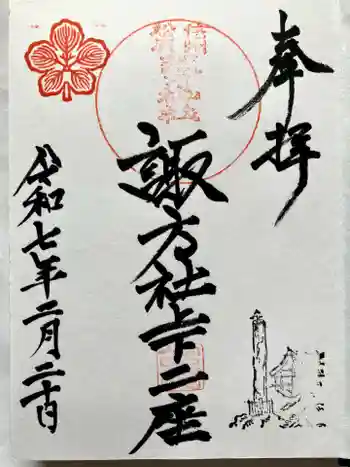 奉拝
諏方社上下二座
令和七年二月二十日